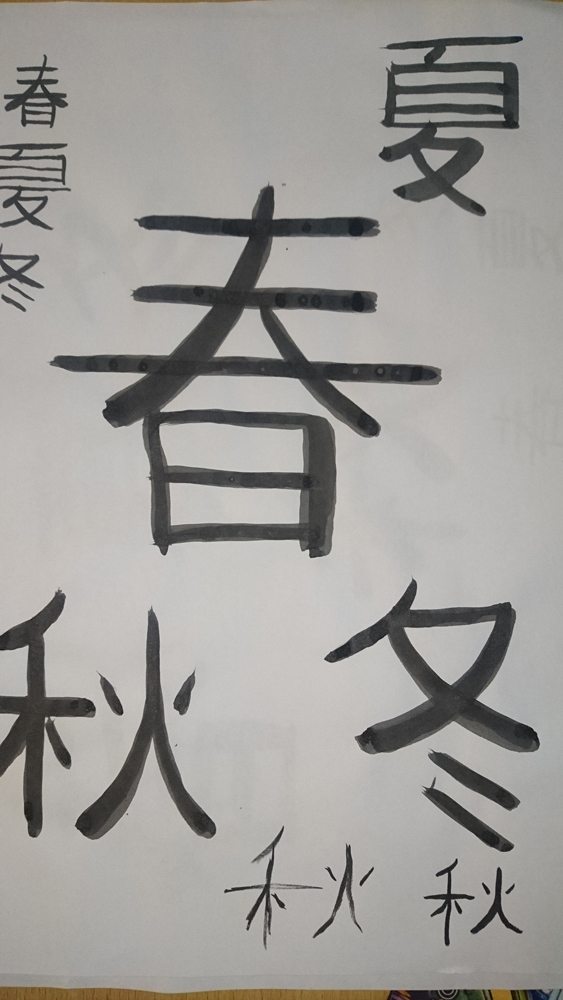 春
夏
冬
夏
春
秋
冬
秋
秋